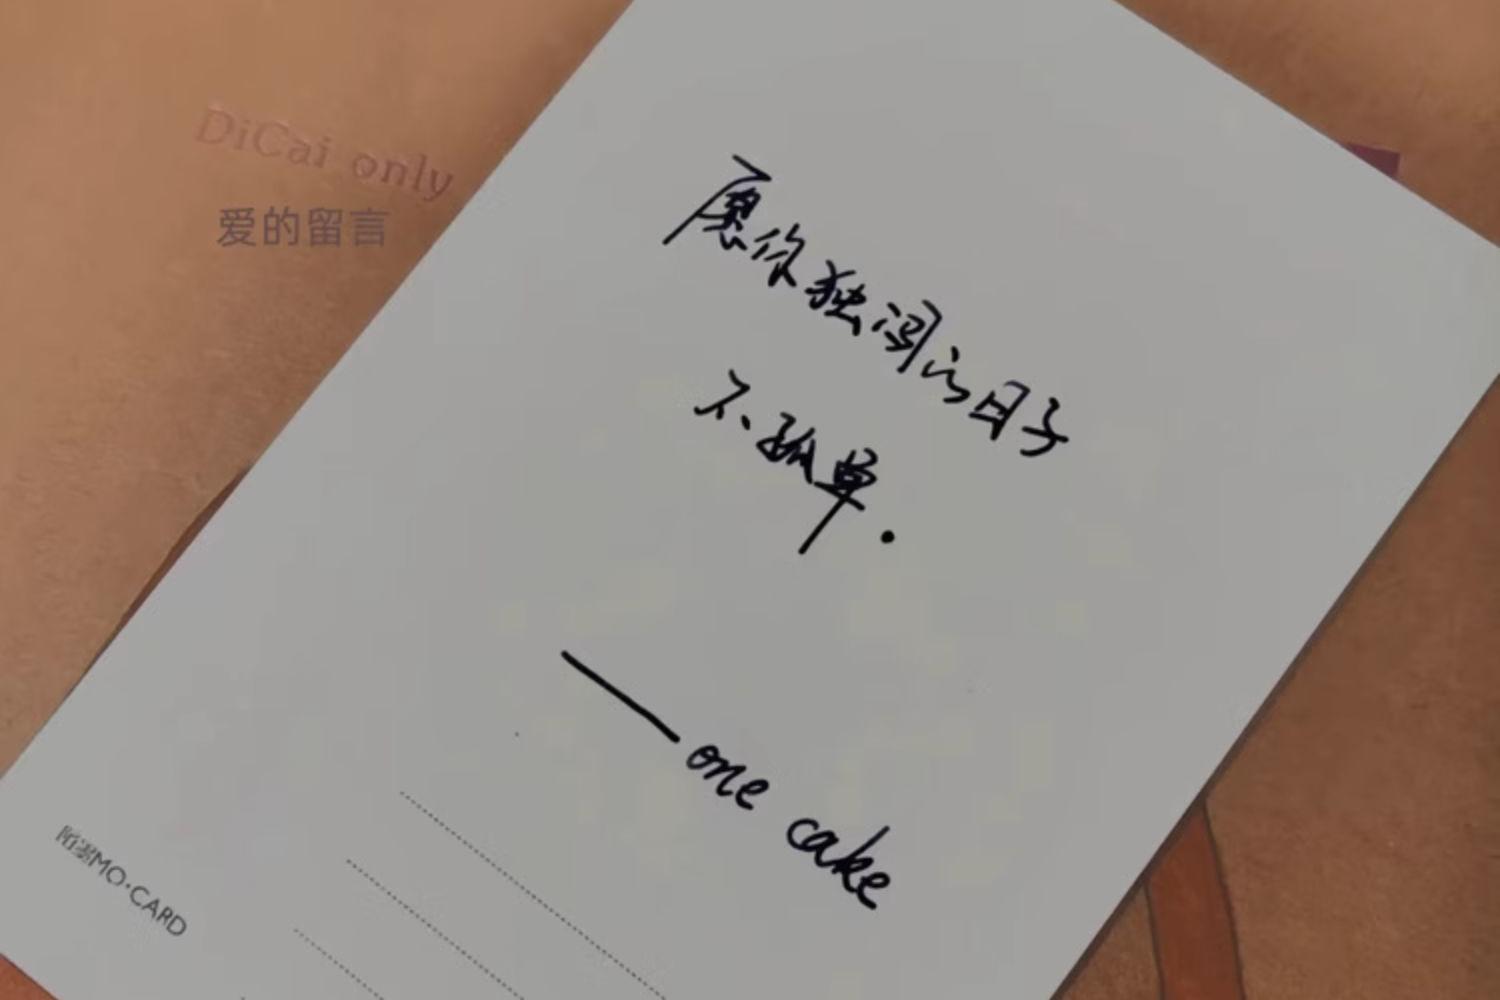 DiCai only
爱的留言
愿你独闯的日子
不孤单.
——one cake
陌潮MO·CARD